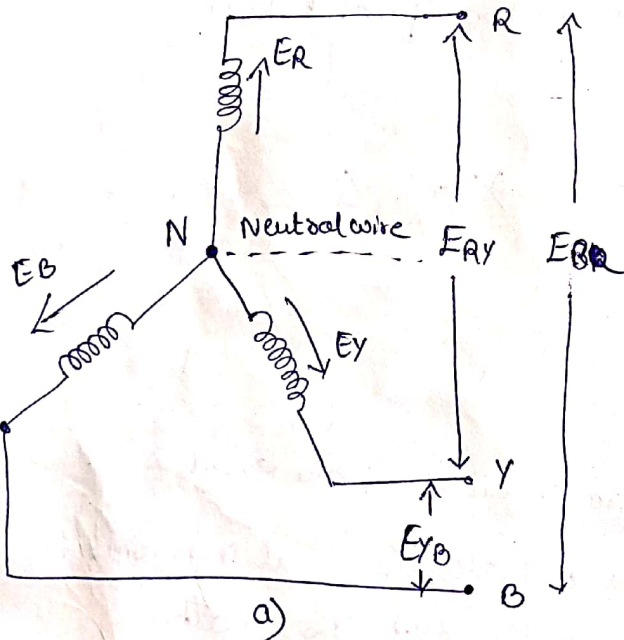 R
ER
N Neutral wire ERY EBR
EB
EY
Y
EYB
B
a)